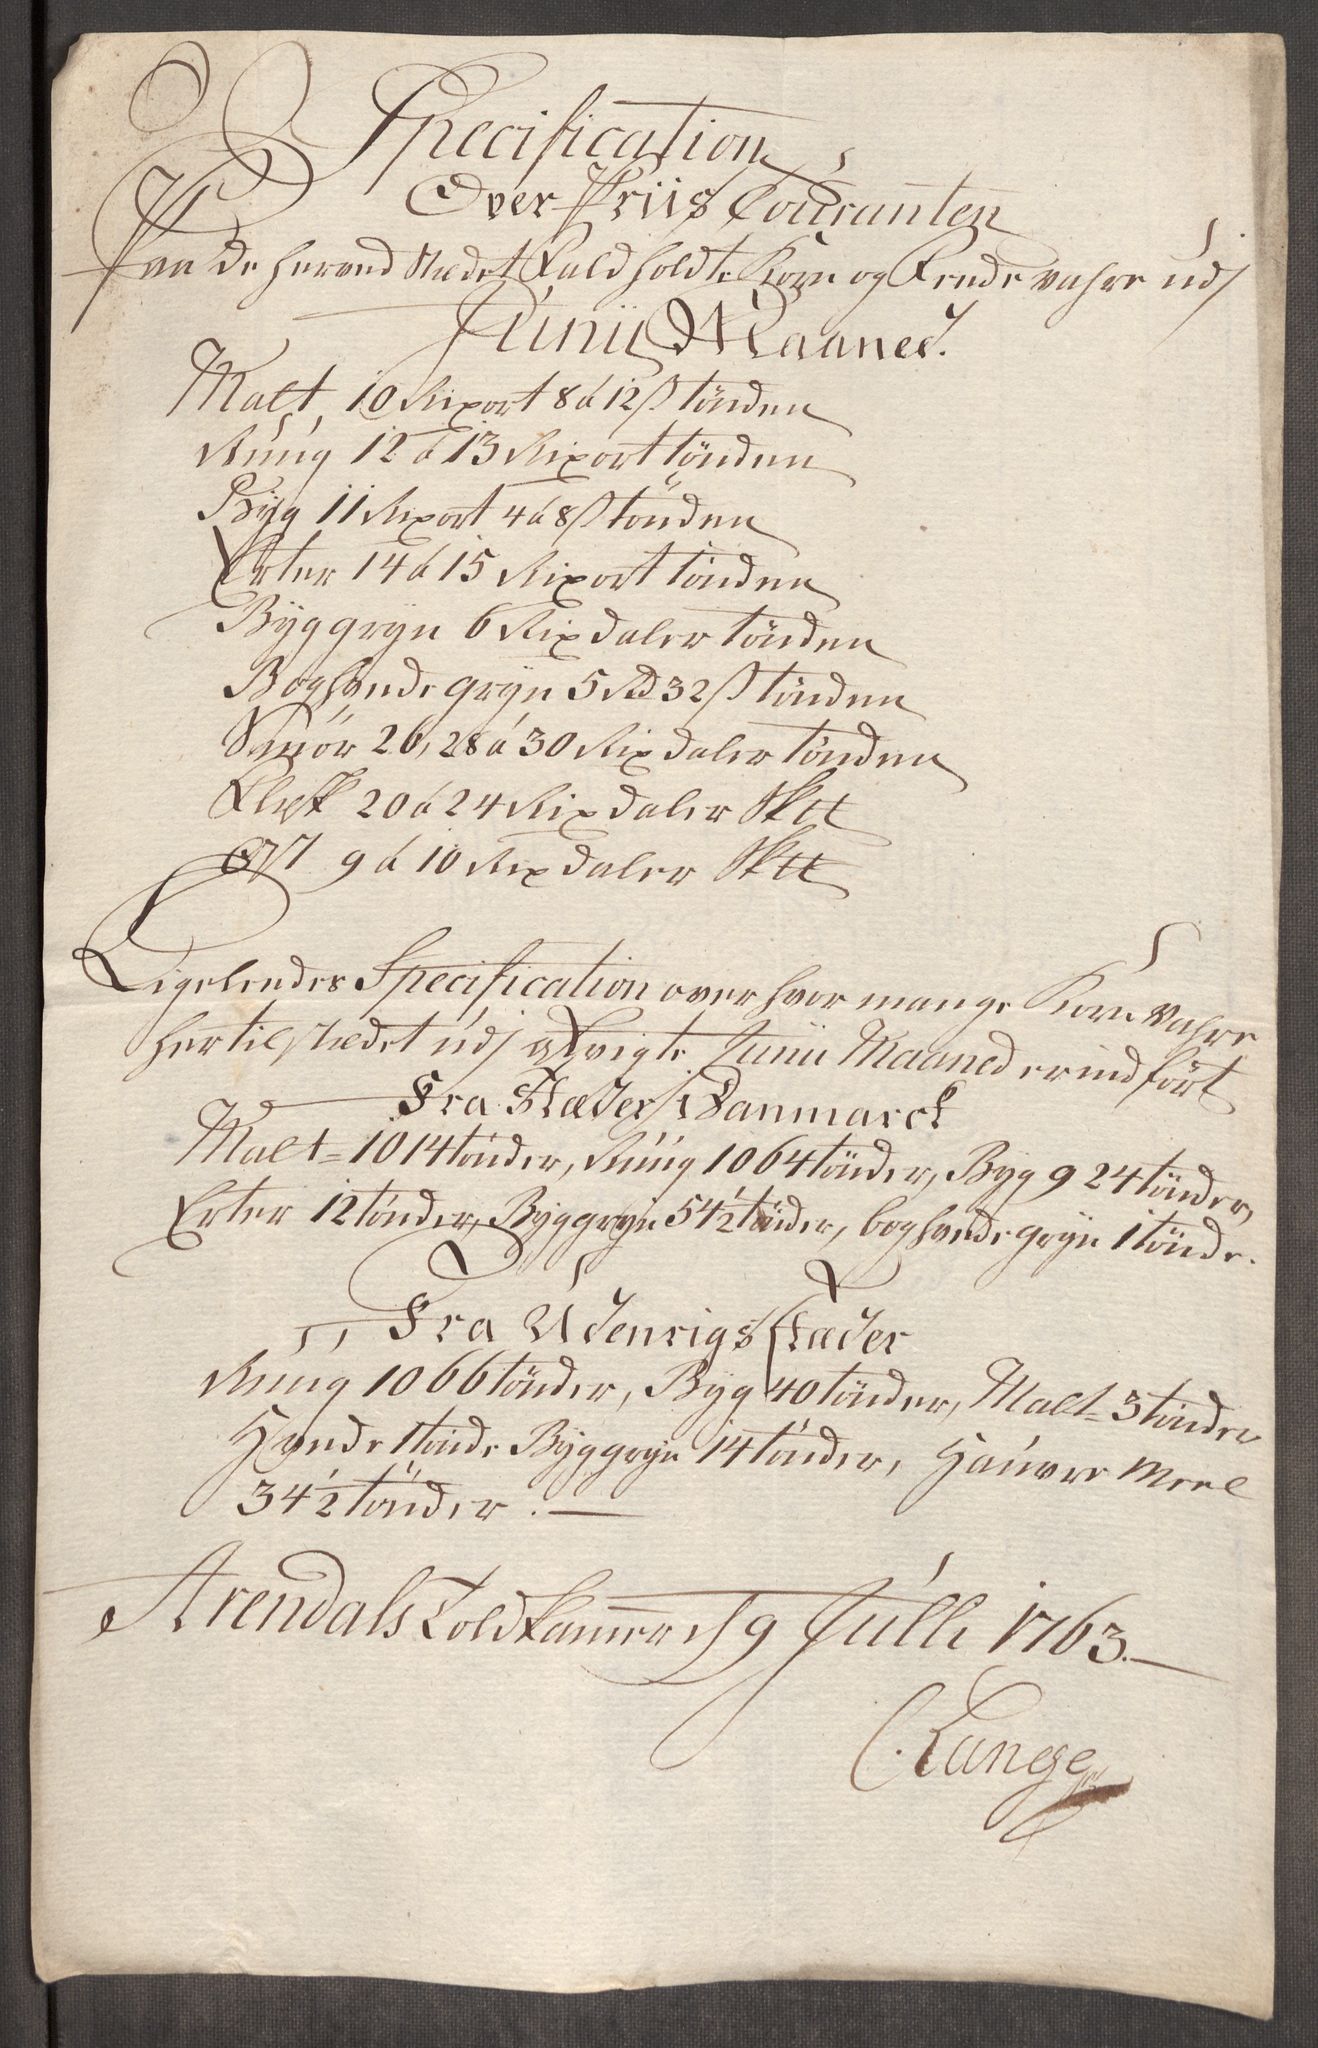 Specification
Over Priis Couranten
Paa de herved Stædet Faldholdte Korn og Fende vahre udj
Junii Maaned.
Malt 10 Rixort 8 á 12 ß tönden
Rúúg 12 á 13 Rixort tönden
Byg 11 Rixort 4 á 8 ß tönden
Erter 14 á 15 Rixort tönden
Byggryn 6 Rixdaler tönden
Boghvedegryn 5 Rd 32 ß tönden
Smör 26, 28 á 30 Rixdaler tönden
Flesk 20 á 24 Rixdaler Sktt
Ost 9 á 10 Rixdaler Sktt
Ligeleedes Specification over hvor mange Korn Vahre
hertil stædet udj afvigte Junii Maaned er indfört
Fra Stæder i Danmarck
Malt = 1014 tönder, Rúúg 1064 tönder, Byg 924 tönder,
Erter 12 tönder, Byggryn 54½ tönder, boghvedegryn 1 tönde.
Fra Udenrigs Stæder
Rúúg 1066 tönder, Byg 40 tönder, Malt = 3 tönder
Hvede 1 tönde Byggryn 14 tönder, Haúvre Meel
34½ tönder. —
Arendals Toldkammer d 9 Júlli 1763. —
C. Lange